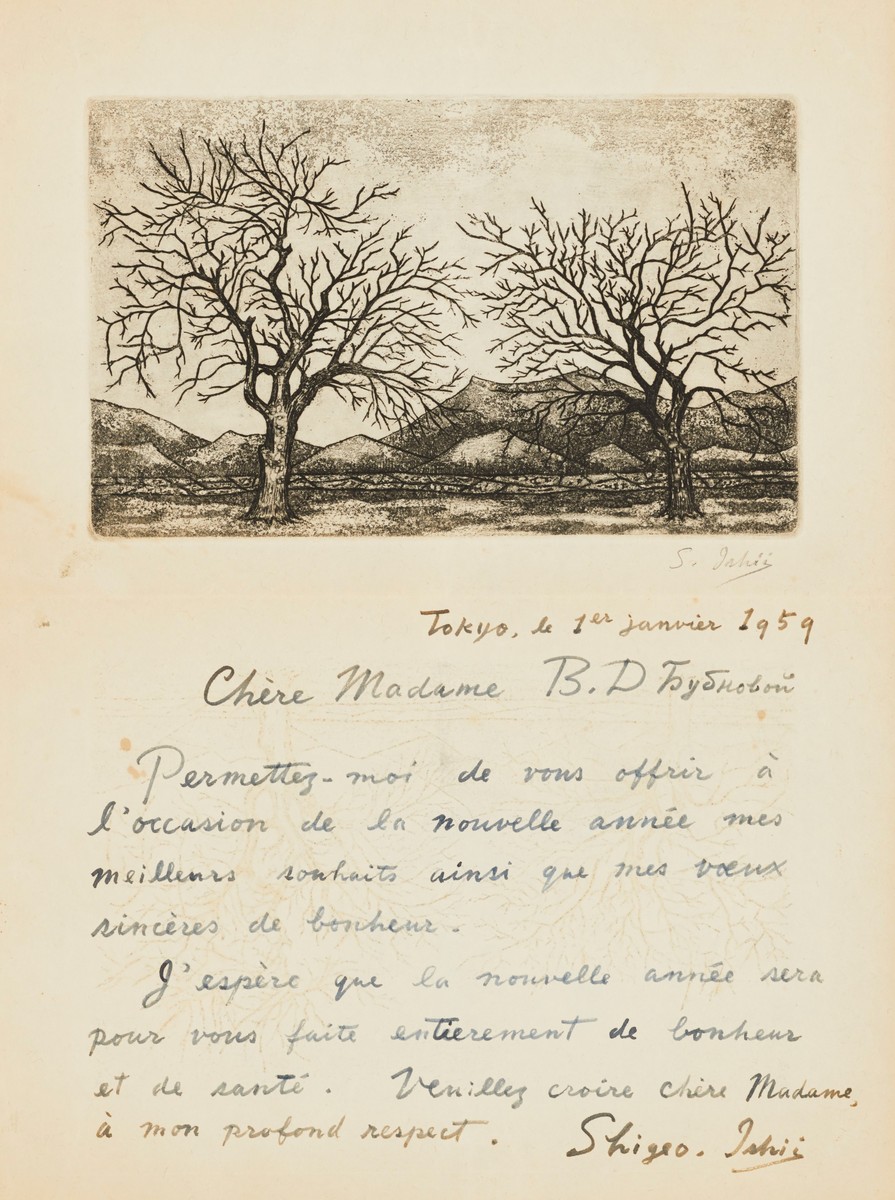 S. Ishii
Tokyo, le 1er janvier 1959
Chère Madame B. D Бубновой
Permettez-moi de vous offrir à
l'occasion de la nouvelle année mes
meilleurs souhaits ainsi que mes vœux
sincères de bonheur.
J'espère que la nouvelle année sera
pour vous faite entierement de bonheur
et de santé. Veuillez croire chère Madame,
à mon profond respect.
Shigeo. Ishii